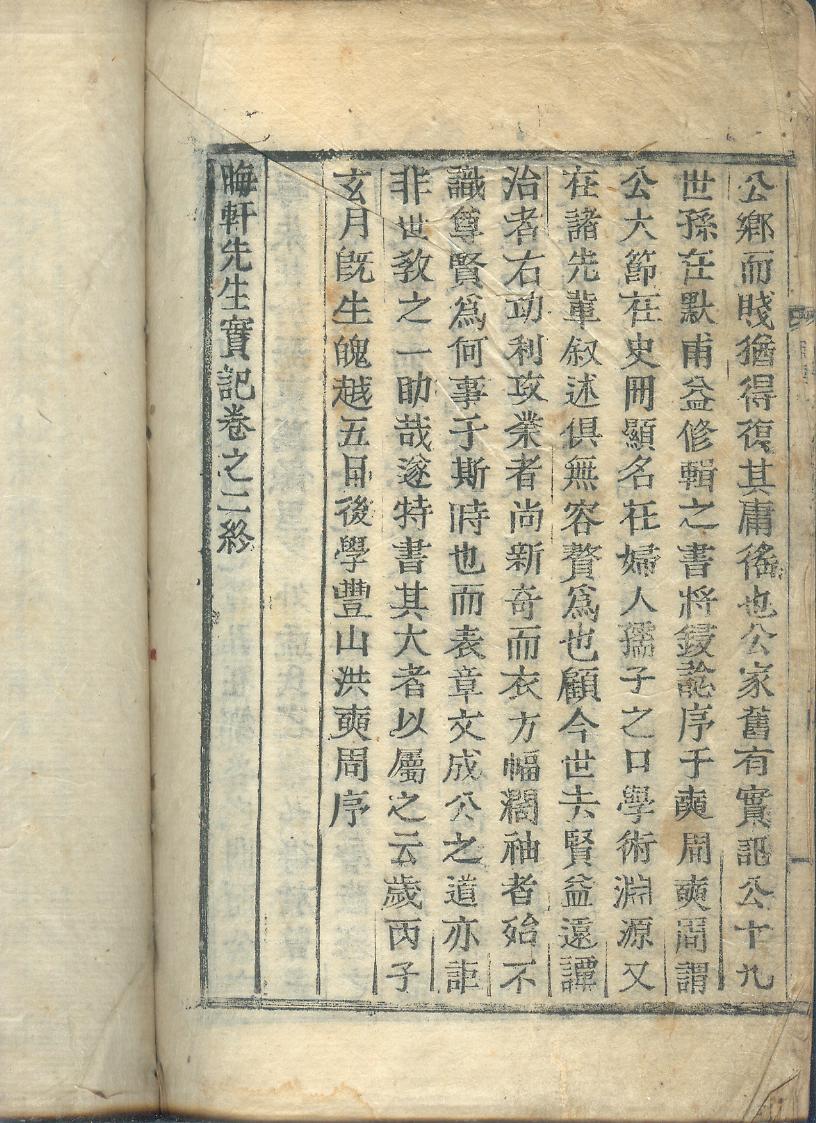 公鄕而賤猶得復其庸徭也公家舊有實記公十九
世孫在默甫益修輯之書將鋟諗序于奭周奭周謂
公大節在史冊顯名在婦人孺子之口學術淵源又
在諸先輩叙述俱無容贅爲也顧今世去賢益遠譚
治者右功利攻業者尚新奇而衣方幅濶袖者殆不
識尊賢爲何事于斯時也而表章文成公之道亦詎
非世敎之一助哉遂特書其大者以屬之云歲丙子
玄月旣生魄越五日後學豐山洪奭周序
晦軒先生實記卷之二終